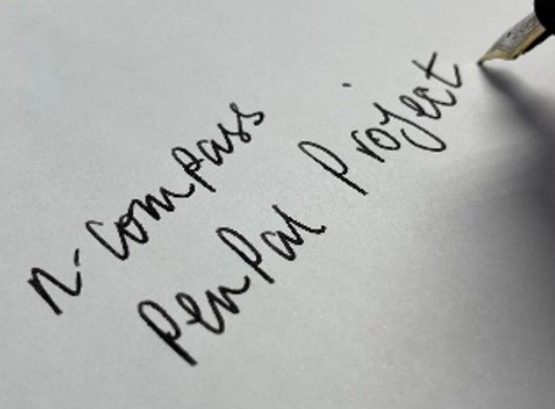 n-compass
PenPal Project